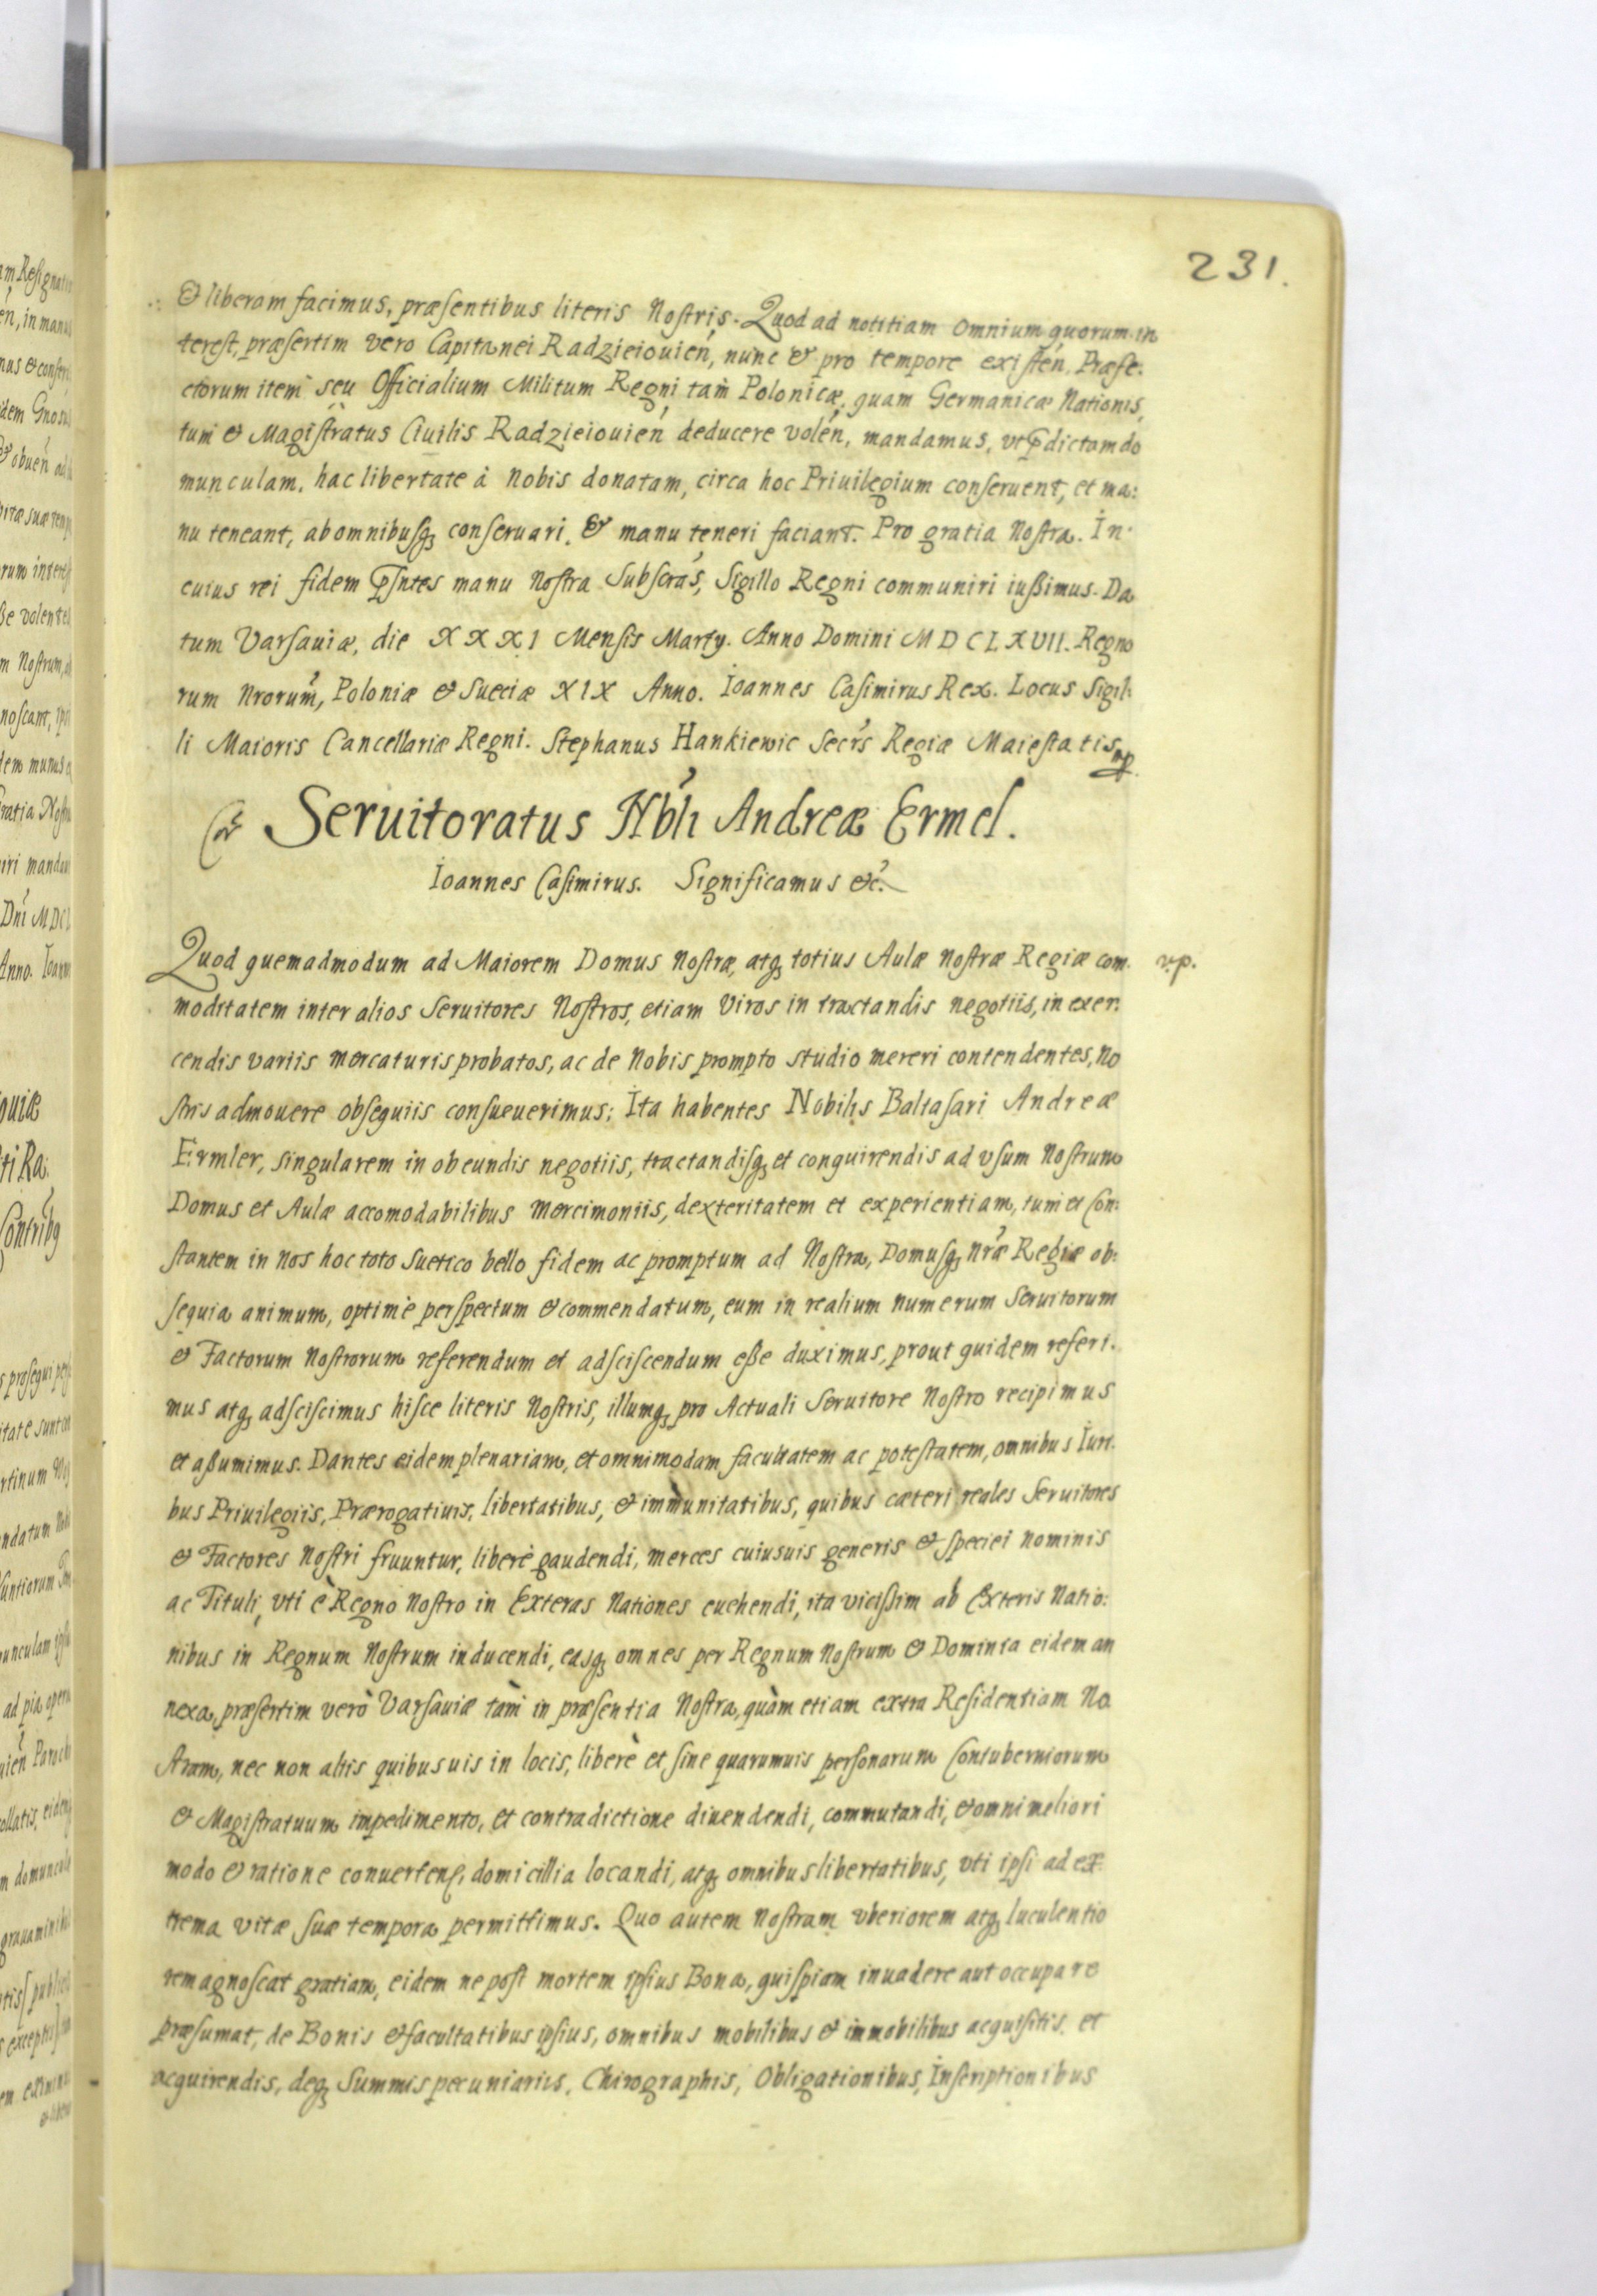 231.
& liberam facimus, præsentibus literis Nostris. Quod ad notitiam omnium quorum in
terest, præsertim vero Capitanei Radzieiouien̄, nunc & pro tempore existen̄, Præfe-
ctorum item seu Officialium Militum Regni tam Polonicæ, quam Germanicæ Nationis,
tum & Magistratus Ciuilis Radzieiouien̄ deducere volen̄, mandamus, vt p̄dictam do
munculam, hac libertate à Nobis donatam, circa hoc Priuilegium conseruent, et ma:
nu teneant, ab omnibusq; conseruari, & manu teneri faciant. Pro gratia Nostra. In
cuius rei fidem p̄sntes manu Nostra Subscras, Sigillo Regni communiri iußimus. Da
tum Varsauiæ, die XXXI Mensis Martÿ. Anno Domini MDCLXVII. Regno
rum Nrorum, Poloniæ & Sueciæ XIX Anno. Ioannes Casimirus Rex. Locus Sigil:
li Maioris Cancellariæ Regni. Stephanus Hankiewic Secrs Regiæ Maiestatis mp
Seruitoratus Nbli Andreæ Ermel.
Ioannes Casimirus. Significamus &c.
Quod quemadmodum ad Maiorem Domus Nostræ, atq; totius Aulæ Nostræ Regiæ com-
moditatem inter alios Seruitores Nostros, etiam Viros in tractandis negotiis, in exer:
cendis variis mercaturis probatos, ac de Nobis prompto studio mereri contendentes, No
stris admouere obsequiis consueuerimus: Ita habentes Nobilis Baltasari Andreæ
Ermler, singularem in obeundis negotiis, tractandisq; et conquirendis ad vsum Nostrum
Domus et Aulæ accomodabilibus mercimoniis, dexteritatem et experientiam, tum et Con:
stantem in Nos hoc toto Suetico bello fidem ac promptum ad Nostra, Domusq; Nræ Regiæ ob:
sequia animum, optimè perspectum & commendatum, eum in realium numerum Seruitorum
& Factorum Nostrorum referendum et adsciscendum eße duximus, prout quidem referi-
mus atq; adsciscimus hisce literis Nostris, illumq; pro Actuali Seruitore Nostro recipimus
et aßumimus. Dantes eidem plenariam, et omnimodam facultatem ac potestatem, omnibus Iuri-
bus Priuilegiis, Prærogatiuis, libertatibus, & immunitatibus, quibus cæteri reales Seruitores
& Factores Nostri fruuntur, liberè gaudendi, merces cuiusuis generis & speciei nominis
ac Tituli, vti è Regno Nostro in Exteras Nationes euehendi, ita vicißim ab Exteris Natio:
nibus in Regnum Nostrum inducendi, easq; omnes per Regnum Nostrum & Dominia eidem an
nexa, præsertim verò Varsauiæ tàm in præsentia Nostra, quàm etiam extra Residentiam No
stram, nec non aliis quibusuis in locis, liberè et sine quarumuis personarum Contuberniorum
& Magistratuum impedimento, et contradictione diuendendi, commutandi, & omni meliori
modo & ratione conuertendi, domicillia locandi, atq; omnibus libertatibus, vti ipsi ad ex-
trema vitæ suæ tempora permittimus. Quo autem Nostram vberiorem atq; luculentio
rem agnoscat gratiam, eidem ne post mortem ipsius Bona, quispiam inuadere aut occupare
præsumat, de Bonis & facultatibus ipsius, omnibus mobilibus & immobilibus acquisitis et
acquirendis, deq; Summis pecuniariis, Chirographis, Obligationibus, Inscriptionibus